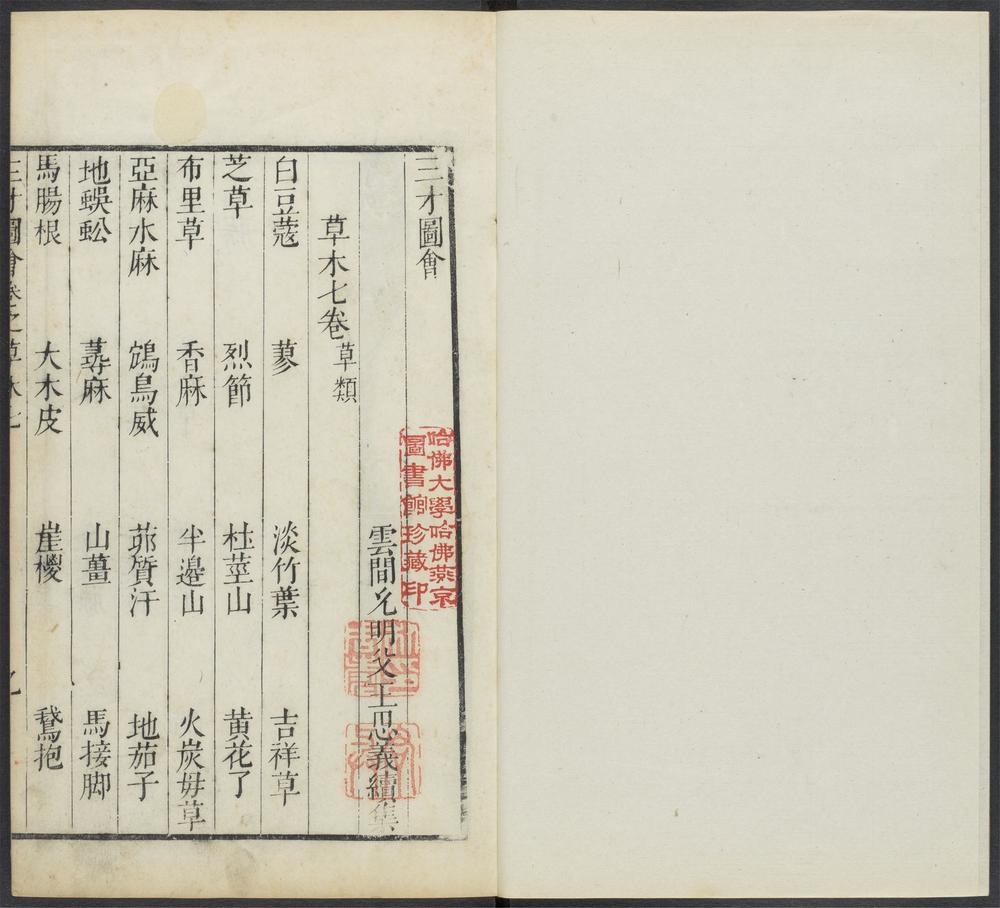 三才圖會
雲間允明父王思義續集
草木七卷 草類
白豆蔻 蓼 淡竹葉 吉祥草
芝草 烈節 杜莖山 黃花了
布里草 香麻 半邊山 火炭母草
亞麻水麻 鴆鳥威 茆質汗 地茄子
地蜈蚣 蕁麻 山薑 馬接脚
馬腸根 大木皮 崖㯶 鵞抱
三才圖會 卷之 草木七
哈佛大學哈佛燕京
圖書館珍藏印